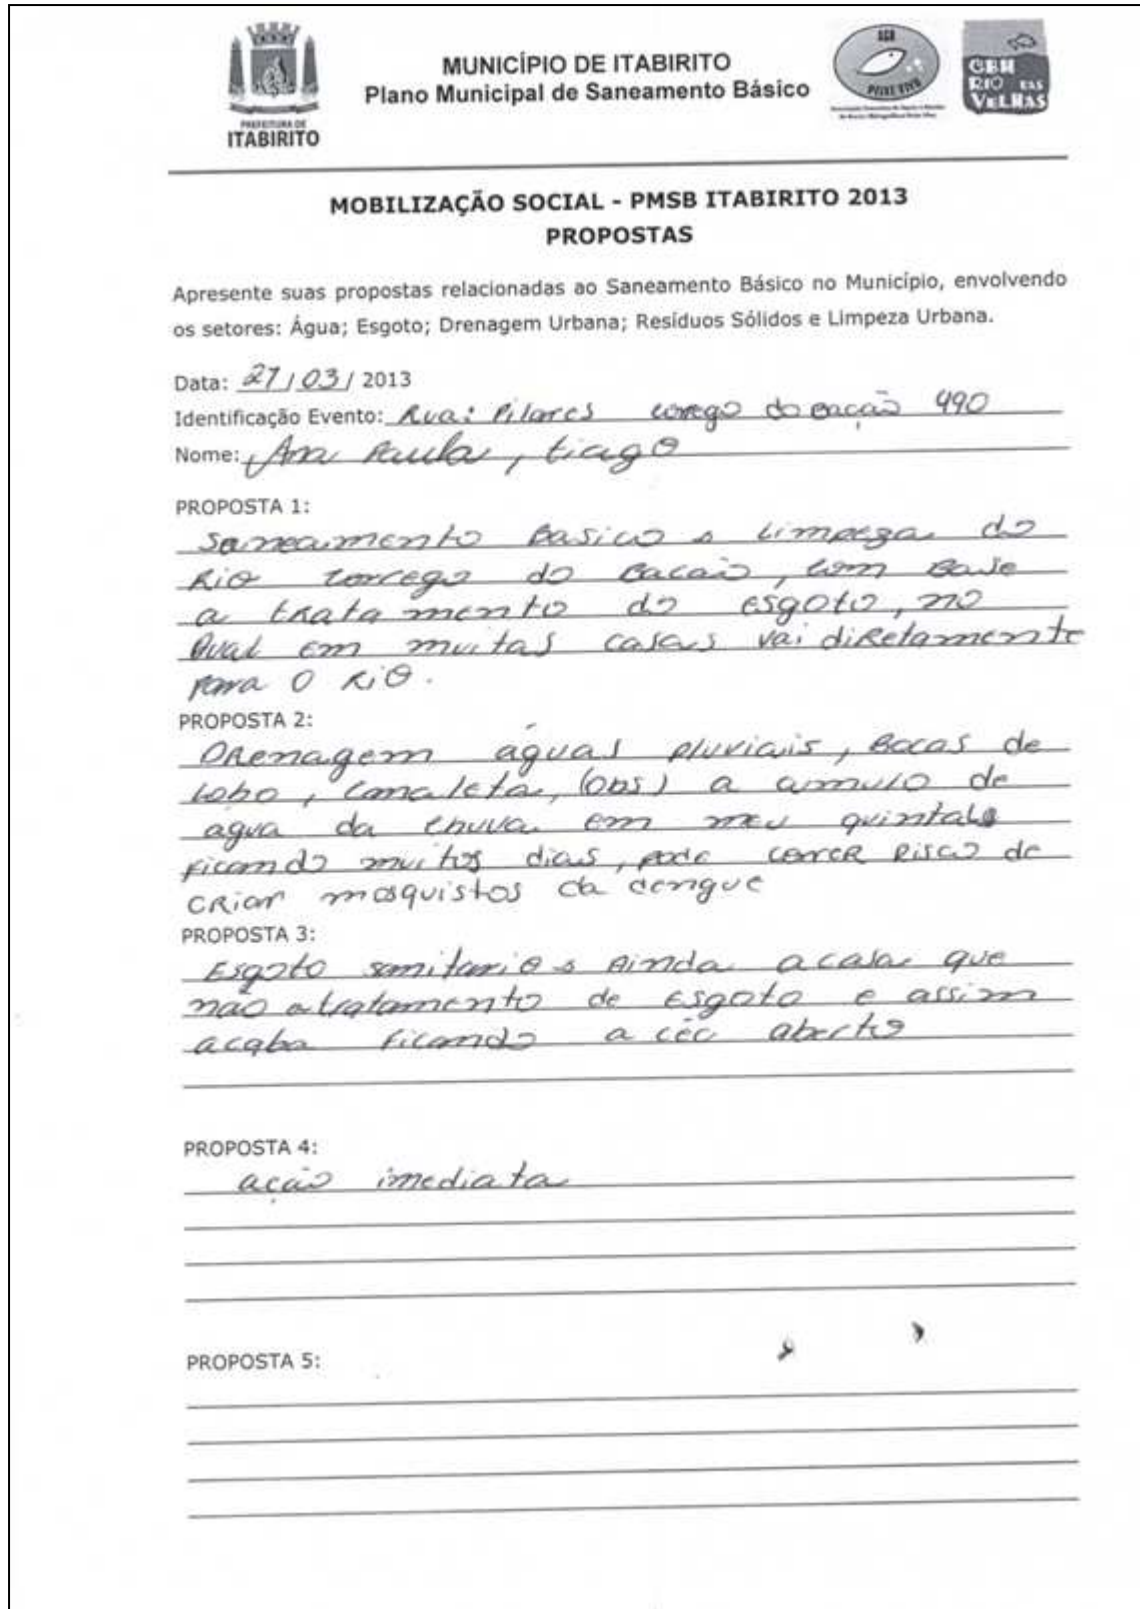 PREFEITURA DE
ITABIRITO
MUNICÍPIO DE ITABIRITO
Plano Municipal de Saneamento Básico
AGB
PEIXE VIVO
CBH
RIO DAS
VELHAS
MOBILIZAÇÃO SOCIAL - PMSB ITABIRITO 2013
PROPOSTAS
Apresente suas propostas relacionadas ao Saneamento Básico no Município, envolvendo
os setores: Água; Esgoto; Drenagem Urbana; Resíduos Sólidos e Limpeza Urbana.
Data: 27/03/ 2013
Identificação Evento: Rua: Pilares corrego do Bação 490
Nome: Ana Paula, tiago
PROPOSTA 1:
Saneamento Basico Limpeza do
Rio correGo do Bacaão, com Base
a tratamento do esgoto, no
Qual em muitas casas vai diRetamente
Para O RiO.
PROPOSTA 2:
DRenagem águas pluviais, Bocas de
Lobo, Canaleta, (obs) a cumulo de
agua da chuva em meu quintal
Ficando muitos dias, pode correR Risco de
CRiar mosquistos da dengue
PROPOSTA 3:
Esgoto sanitario Ainda a casa que
não a tratamento de Esgoto e assim
acaba Ficando a céu aberto
PROPOSTA 4:
ação imediata
PROPOSTA 5: